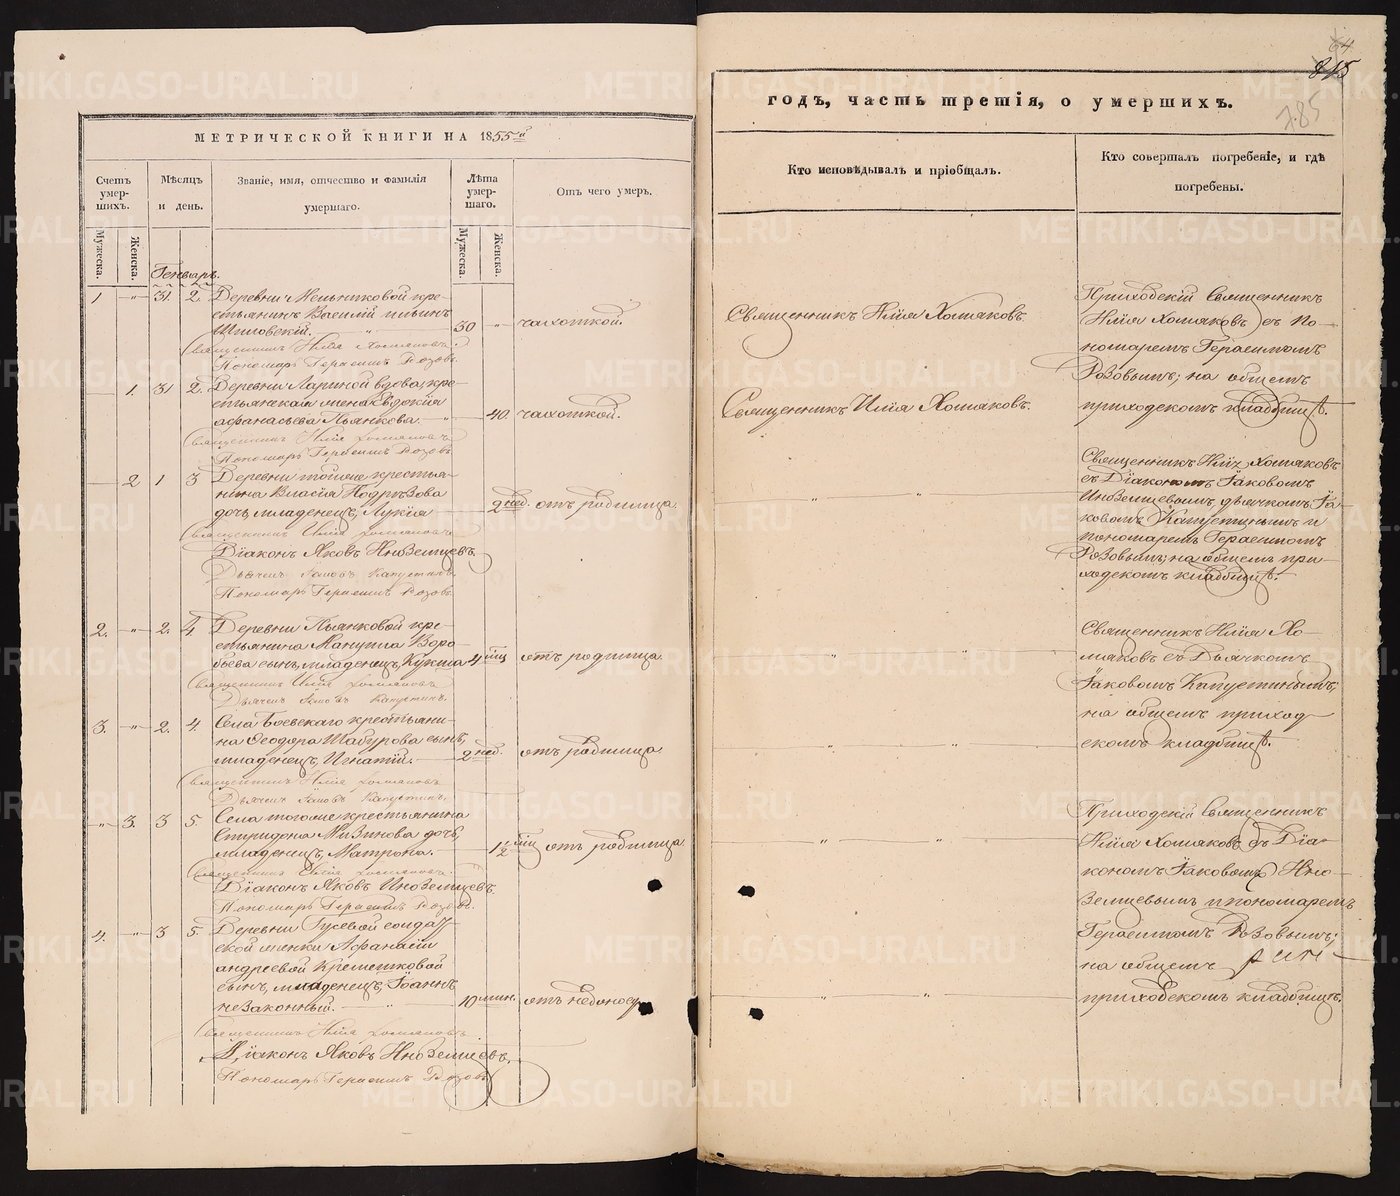 МЕТРИЧЕСКОЙ КНИГИ НА 1855й
Счетъ умерших. Мѣсяцъ и день. Званіе, имя, отчество и фамилія умершаго. Лѣта умершаго. Отъ чего умеръ.
Мужеска. Женска. Мужеска. Женска.
Генварь.
1 " 31 2. Деревни Мельниковой кре-
стьянинъ Василій Ильинъ
Шиловскій. 30 " чахоткой.
Священникъ Илія Хомяковъ.
Пономарь Герасимъ Розовъ.
1. 31 2. Деревни Лариной вдова, кре-
стьянская жена Евдокія
Афанасьева Пьянкова. 40. чахоткой.
Священникъ Илія Хомяковъ
Пономарь Герасимъ Розовъ
2 1 3 Деревни тойже крестья-
нина Власія Подрѣзова
дочь, младенецъ, Лукія 2 нед. отъ родимца.
Священникъ Илія Хомяковъ
Діаконъ Яковъ Иноземцевъ
Дьячекъ Іаковъ Капустинъ.
Пономарь Герасимъ Розовъ.
2. " 2. 4. Деревни Пьянковой кре-
стьянина Мануила Воро-
бьева сынъ, младенецъ, Кукша 4 отъ родимца
Священникъ Илія Хомяковъ
Дьячекъ Іаковъ Капустинъ.
3. " 2. 4. Села Боевскаго крестьяни-
на Ѳеодора Шабурова сынъ,
младенецъ, Игнатій. 2 нед. отъ родимца
Священникъ Илія Хомяковъ
Дьячекъ Іаковъ Капустинъ.
" 3. 3 5. Села тогоже крестьянина
Спиридона Мизинова дочь,
младенецъ, Матрона. 1½ отъ родимца
Священникъ Илія Хомяковъ.
Діаконъ Яковъ Иноземцевъ.
Пономарь Герасимъ Розовъ.
4. " 3 5. Деревни Гусевой солдат-
ской женки Афанасіи
Андреевой Кремешковой
сынъ, младенецъ, Іоаннъ,
незаконный. 10 мин. отъ недоносу
Священникъ Илія Хомяковъ
Діаконъ Яковъ Иноземцевъ,
Пономарь Герасимъ Розовъ
64
815
785
годъ, часть третія, о умершихъ.
Кто исповѣдывалъ и пріобщалъ. Кто совершалъ погребеніе, и гдѣ погребены.
Священникъ Илія Хомяковъ.
Священникъ Илія Хомяковъ.
Приходскій Священникъ
Илія Хомяковъ съ По-
номаремъ Герасимомъ
Розовымъ; на общемъ
приходскомъ кладбищѣ.
Священникъ Илія Хомяковъ
съ Діакономъ Іаковомъ
Иноземцевымъ, дьячкомъ Іа-
ковомъ Капустинымъ и
пономаремъ Герасимомъ
Розовымъ; на общемъ при-
ходскомъ кладбищѣ.
Священникъ Илія Хо-
мяковъ съ Дьячкомъ
Іаковомъ Капустинымъ;
на общемъ приход-
скомъ кладбищѣ.
Приходскій Священникъ
Илія Хомяковъ съ Діа-
кономъ Іаковомъ Ино-
земцевымъ и пономаремъ
Герасимомъ Розовымъ;
на общемъ
приходскомъ кладбищѣ.
METRIKI.GASO-URAL.RU